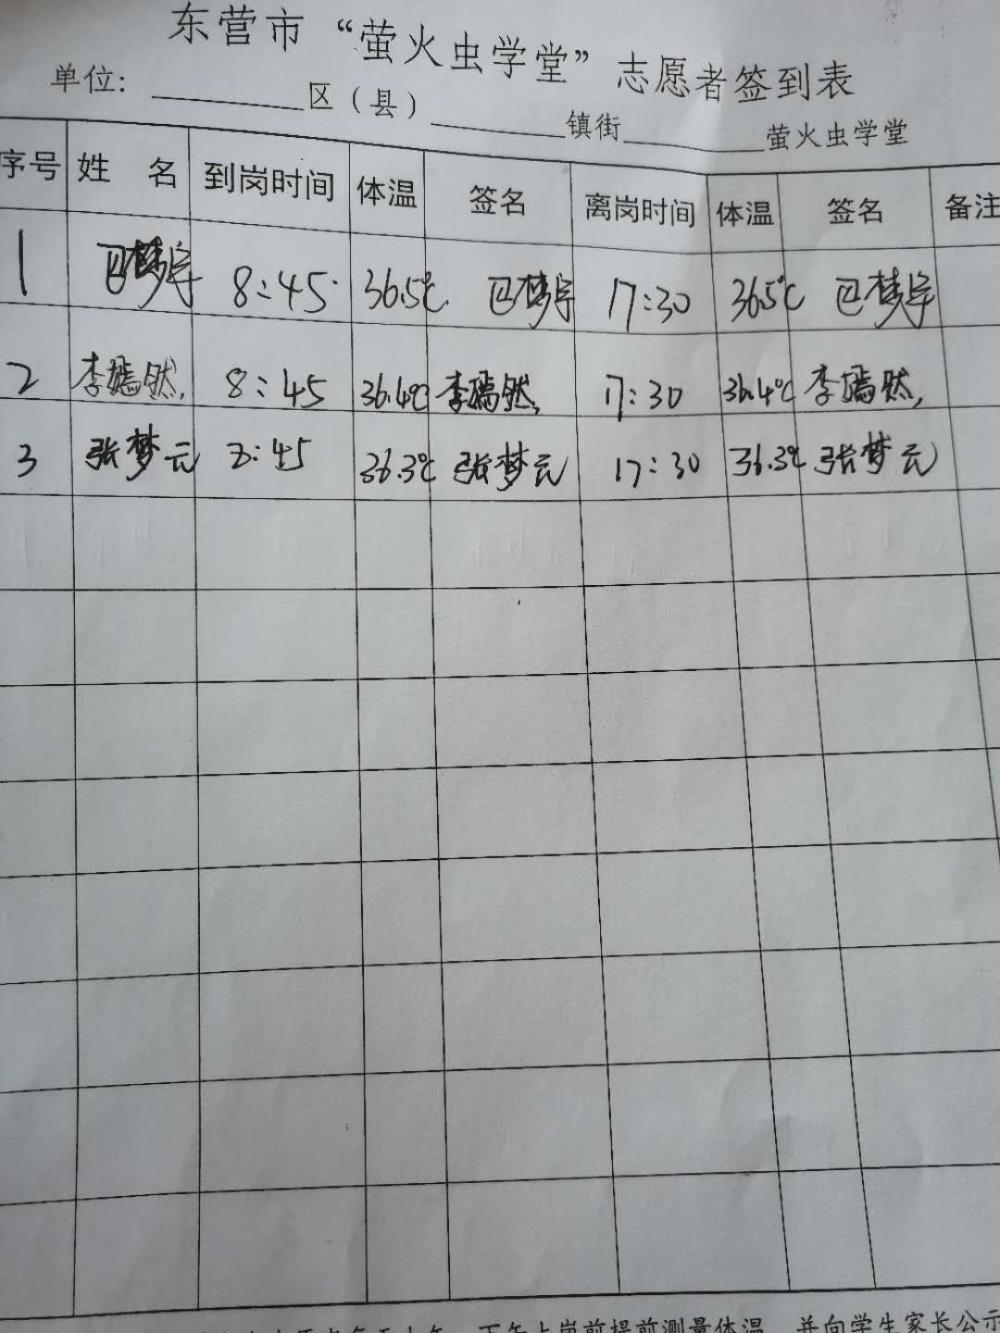 东营市“萤火虫学堂”志愿者签到表
单位: ________区(县)________镇街________萤火虫学堂
序号 姓 名 到岗时间 体温 签名 离岗时间 体温 签名 备注
1 巴梦宇 8:45 36.5℃ 巴梦宇 17:30 36.5℃ 巴梦宇
2 李嫣然. 8:45 36.4℃ 李嫣然. 17:30 36.4℃ 李嫣然.
3 张梦元 8:45 36.3℃ 张梦元 17:30 36.3℃ 张梦元
下午上岗前提前测量体温,并向学生家长公示